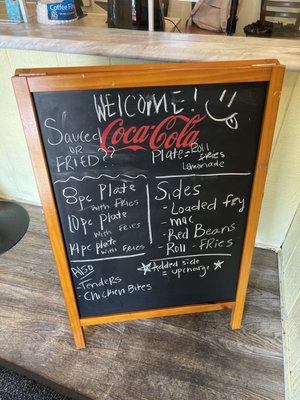 Coffee Filters
WELCOME!
Sauced
OR
FRIED??
Coca-Cola
Plate = Roll
Fries
Lemonade
8pc Plate
with FRIES
10pc Plate
with FRIES
14pc Plate
with FRIES
Sides
- Loaded fry
- mac
- Red Beans
- Roll - FRIES
Also
- Tenders
- Chicken Bites
Added side
= upcharge